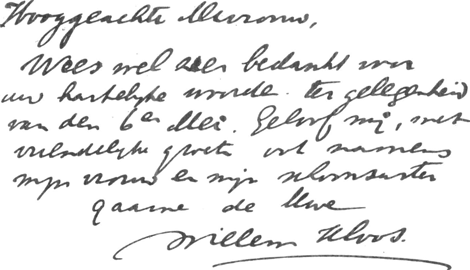 Hooggeachte Mevrouw,
Wees wel zeer bedankt voor
uw hartelijke woorde ter gelegenheid
van den 6en Mei. Geloof mij, met
vriendelijke groeten ook namens
mijn vrouw en mijn schoonzuster
gaarne de Uwe
Willem Kloos.